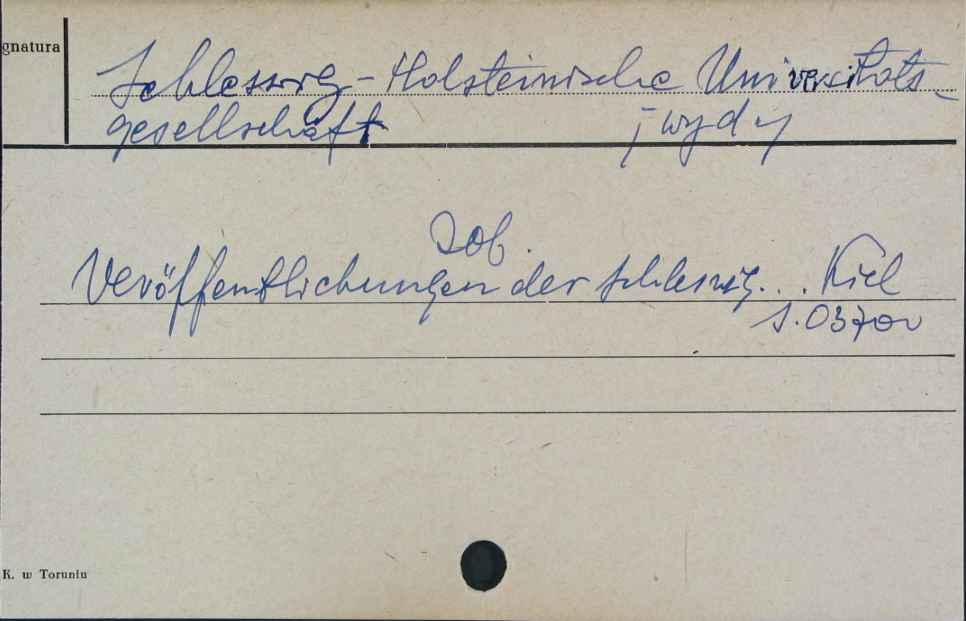 gnatura
Schleswig-Holsteinische Universitäts-
gesellschaft /wyd/
Zob.
Veröffentlichungen der Schleswig... Kiel
S.03700
K. w Toruniu